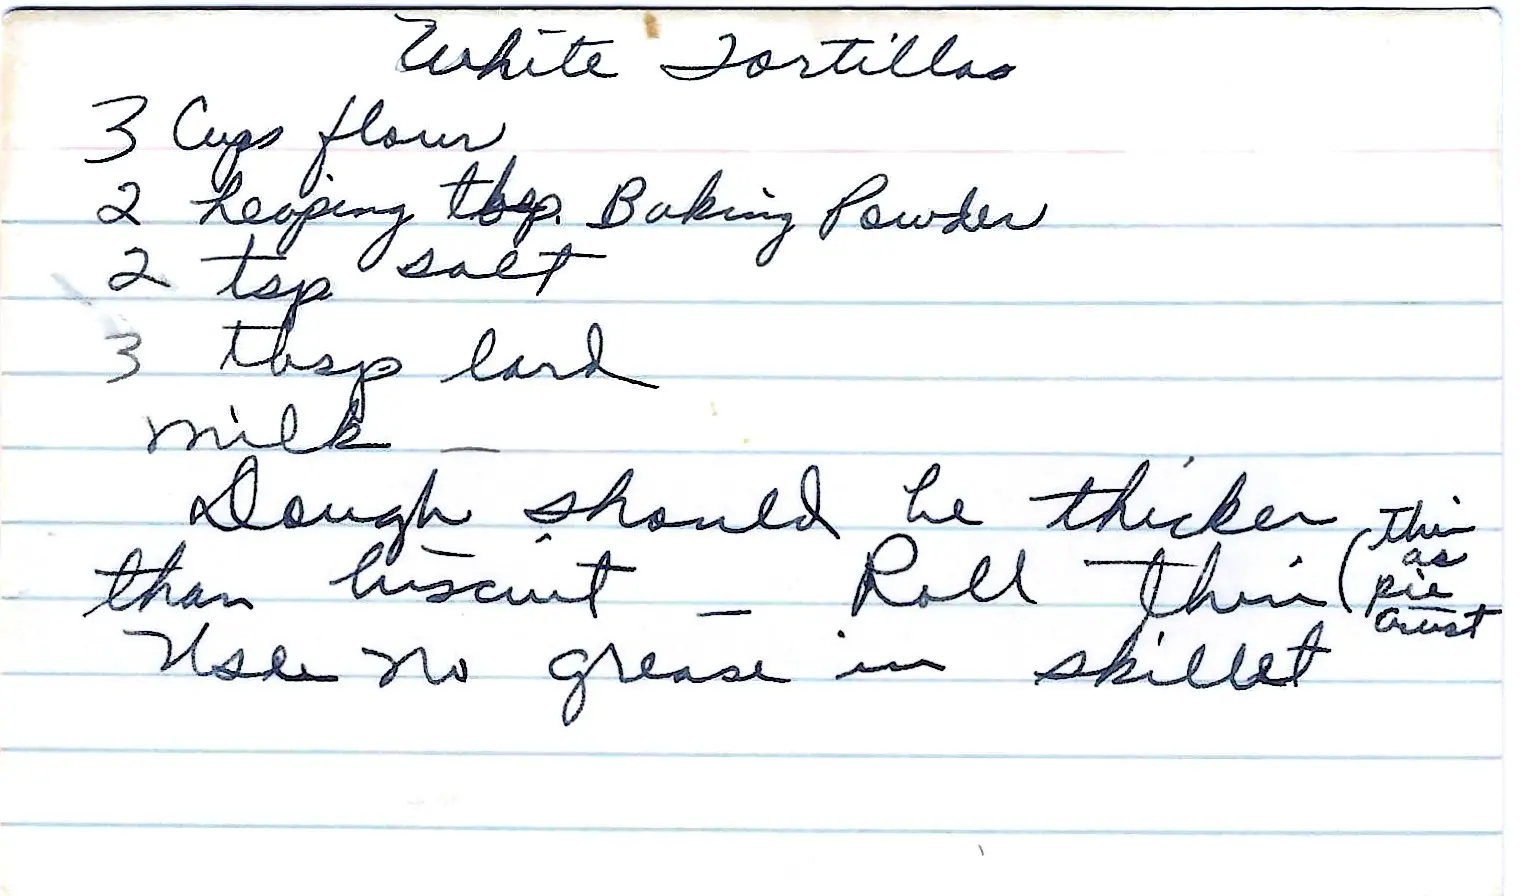 White Tortillas
3 Cups flour
2 heaping tbsp. Baking Powder
2 tsp salt
3 tbsp lard
milk —
Dough should be thicker
than biscuit — Roll thin (thin
as
pie
crust
Use no grease in skillet